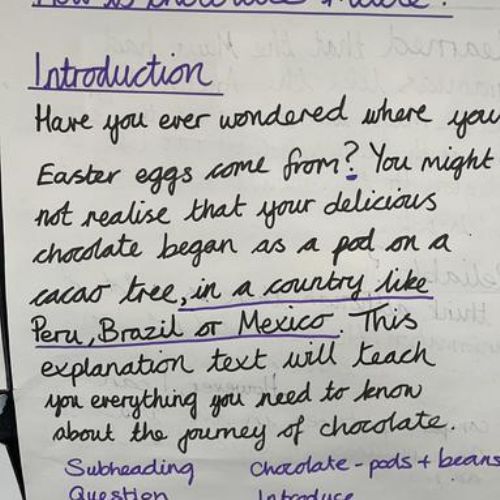 How is chocolate made?
Introduction
Have you ever wondered where you
Easter eggs come from? You might
not realise that your delicious
chocolate began as a pod on a
cacao tree, in a country like
Peru, Brazil or Mexico. This
explanation text will teach
you everything you need to know
about the journey of chocolate.
Subheading Chocolate - pods + beans
Question Introduce